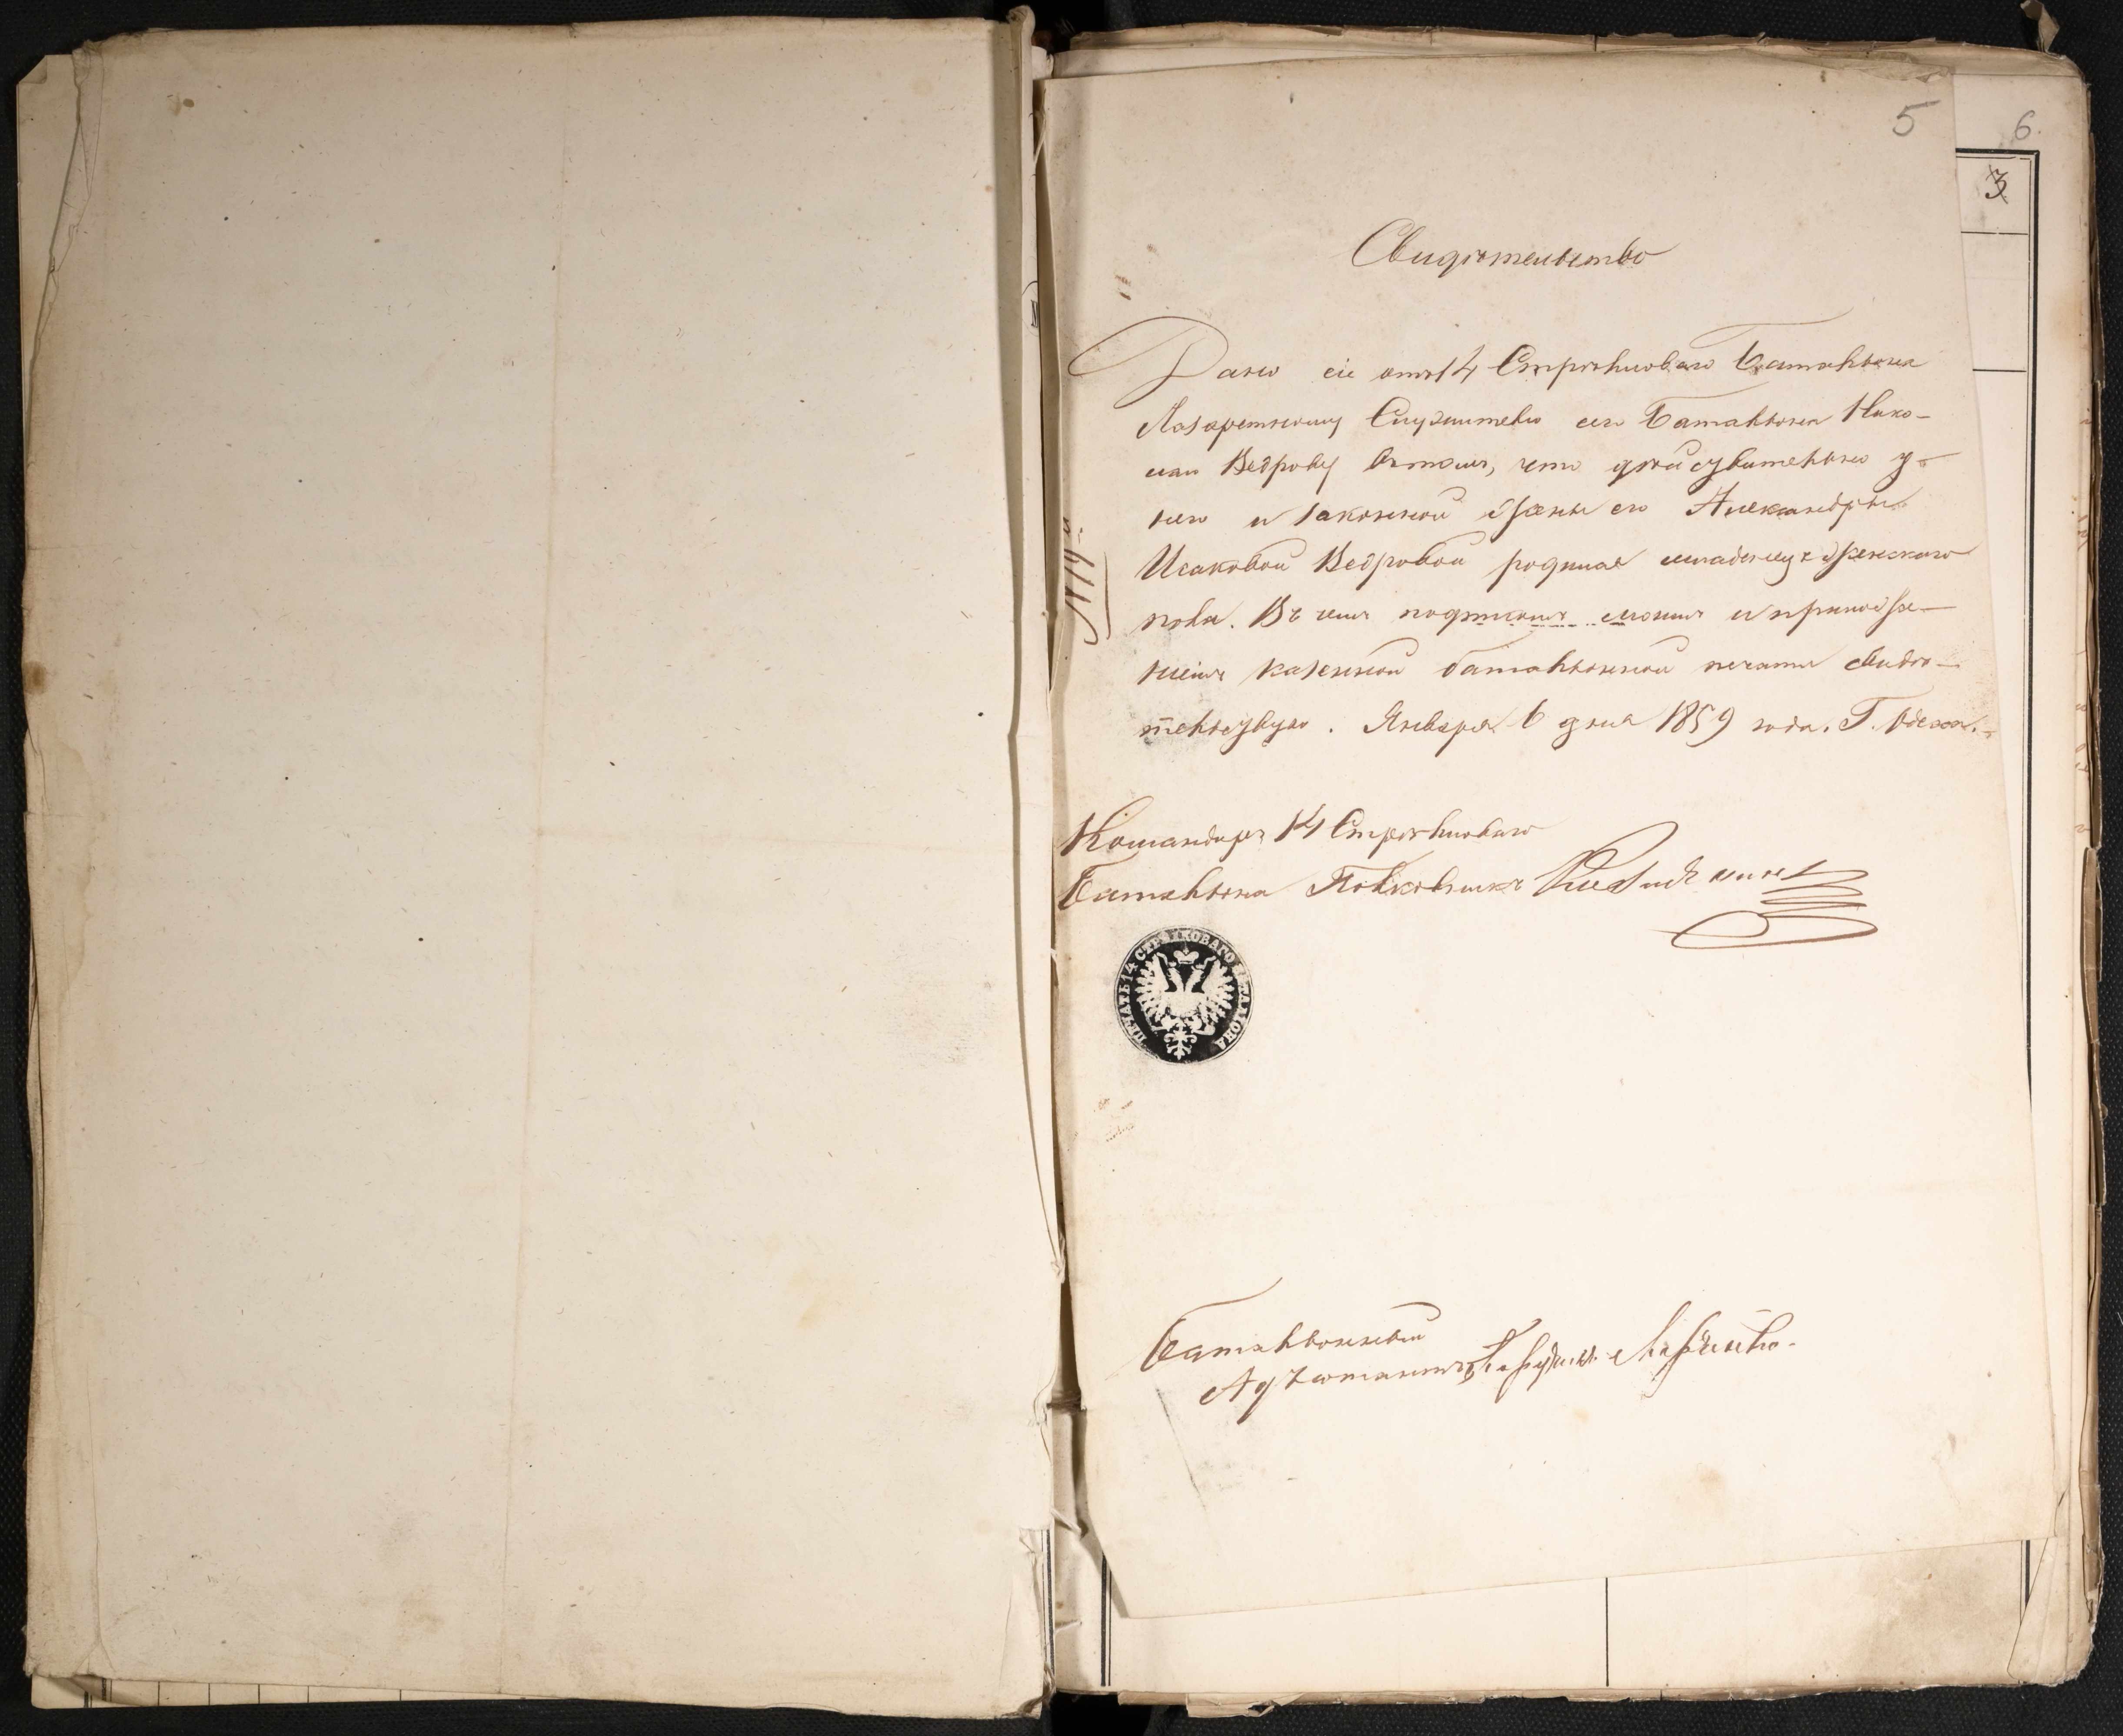 5
6
3
Свидѣтельство
Дано сіе отъ 14 Стрѣлковаго Баталіона
Лазаретному Служителю сего Баталіона Нико-
лаю Ведрову въ томъ, что дѣйствительно у
него и законной жены его Александры
Исаковой Ведровой родилась младенецъ женскаго
пола. Въ чемъ подписомъ моимъ и приложе-
ніемъ казенной баталіонной печати свидѣ-
тельствую. Января 6 дня 1859 года. Г. Одесса.
Командиръ 14 Стрѣлковаго
Баталіона Полковникъ
ПЕЧАТЬ 14 СТРѢЛКОВАГО БАТАЛІОНА
Баталіонный
Адъютантъ